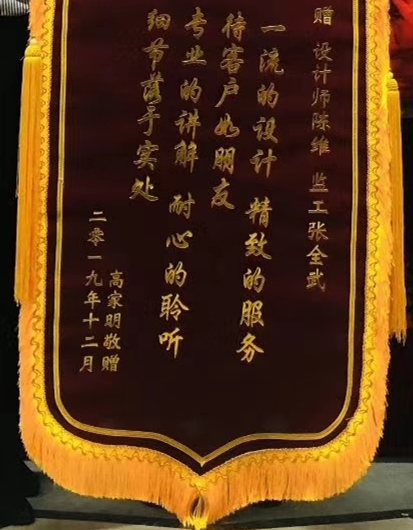 赠 设计师陈维 监工张全武
一流的设计 精致的服务
待客户如朋友
专业的讲解 耐心的聆听
细节落乎实处
高家明敬赠
二零一九年十二月